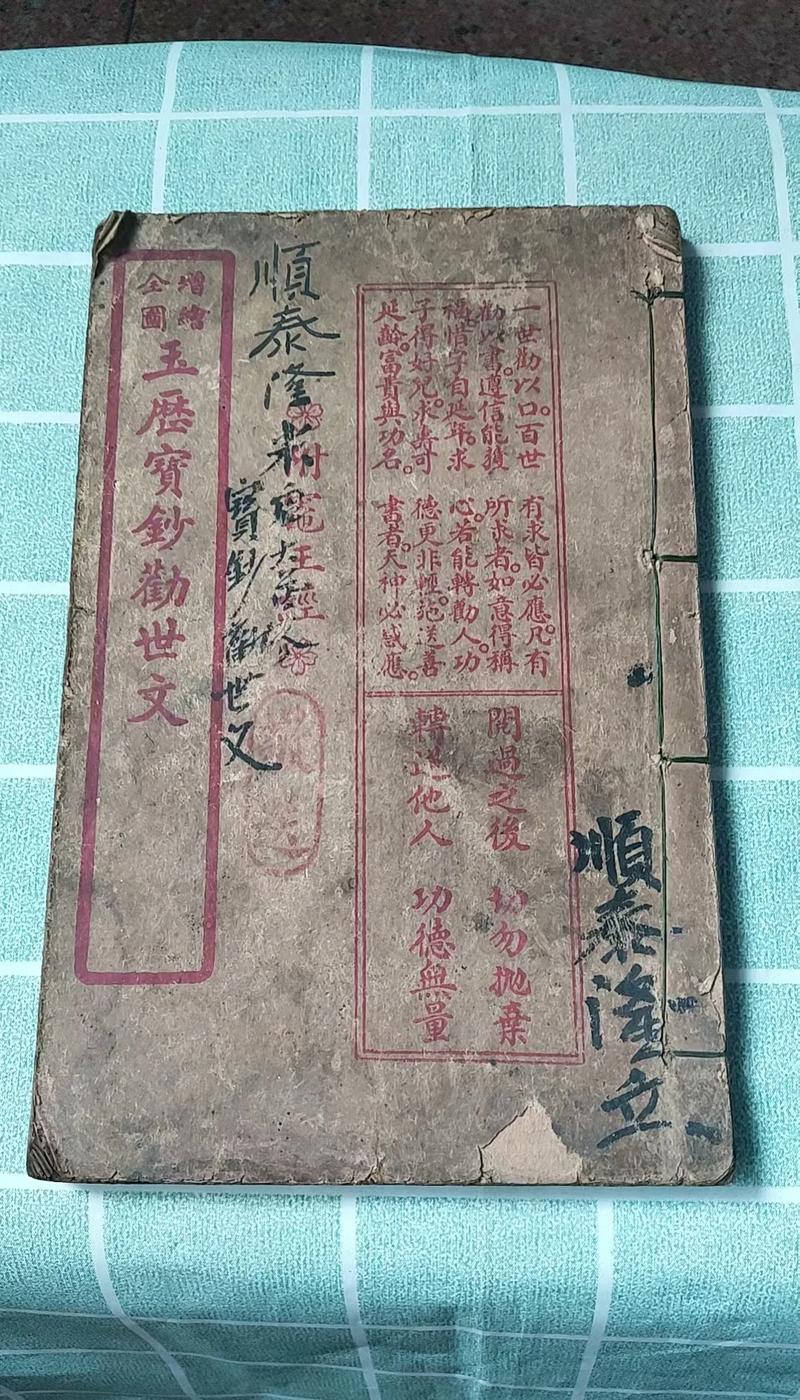 一世勸以口。百世
勸以書。遵信能獲
福。惜字自延年。求
子得好兒。求壽可
延齡。富貴與功名。
有求皆必應。凡有
所求者。如意得稱
心。若能轉勸人。功
德更非輕。施送善
書者。天神必感應。
閱過之後 切勿拋棄
轉送他人 功德無量
附竈王經
增繪全圖
玉歷寶鈔勸世文
順泰隆
寶鈔勸世文
順泰隆立